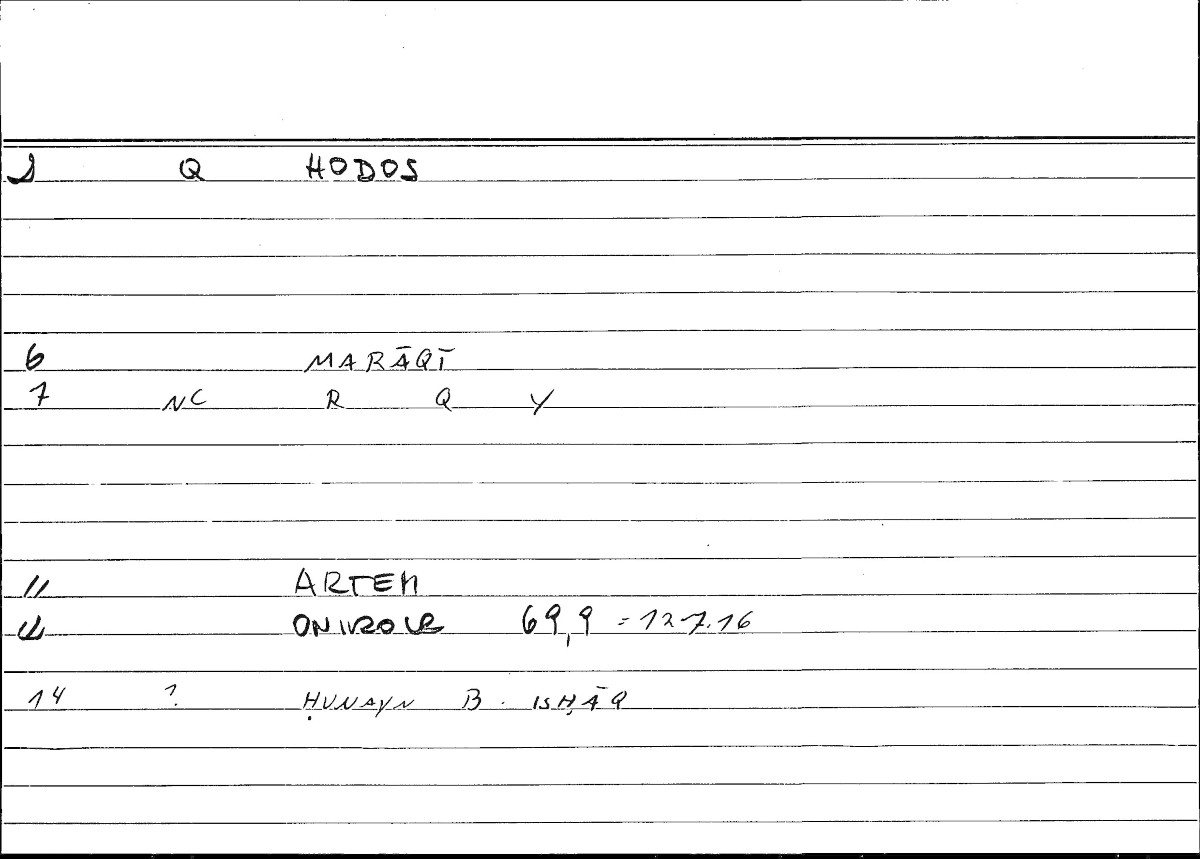 1 Q HODOS
6 MARĀQĪ
7 NC R Q Y
11 ARTEM
11 ONIROCR 69,9 = 12.7.16
14 ? ḤUNAYN B. ISḤĀQ